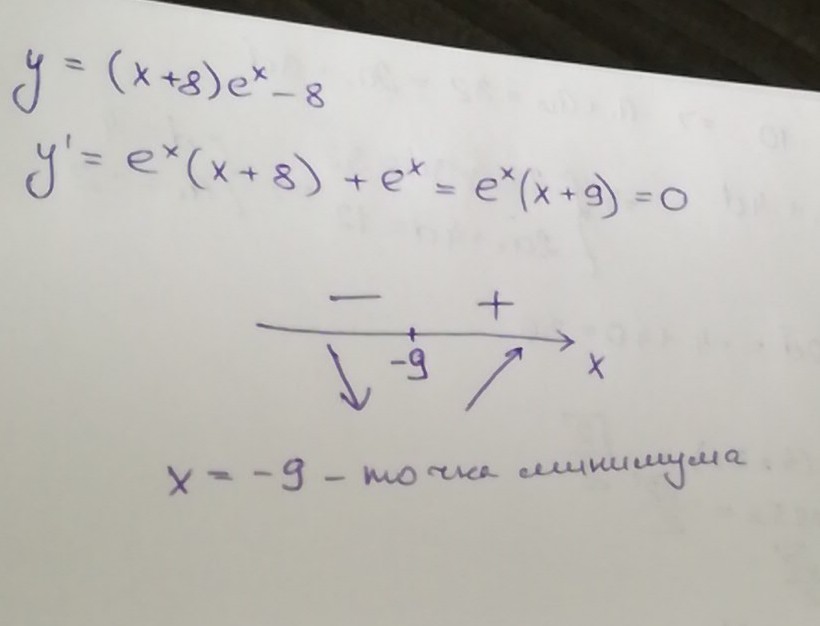 y = (x+8)eˣ - 8
y' = eˣ(x+8) + eˣ = eˣ(x+9) = 0
— +
-9 x
x = -9 - точка минимума